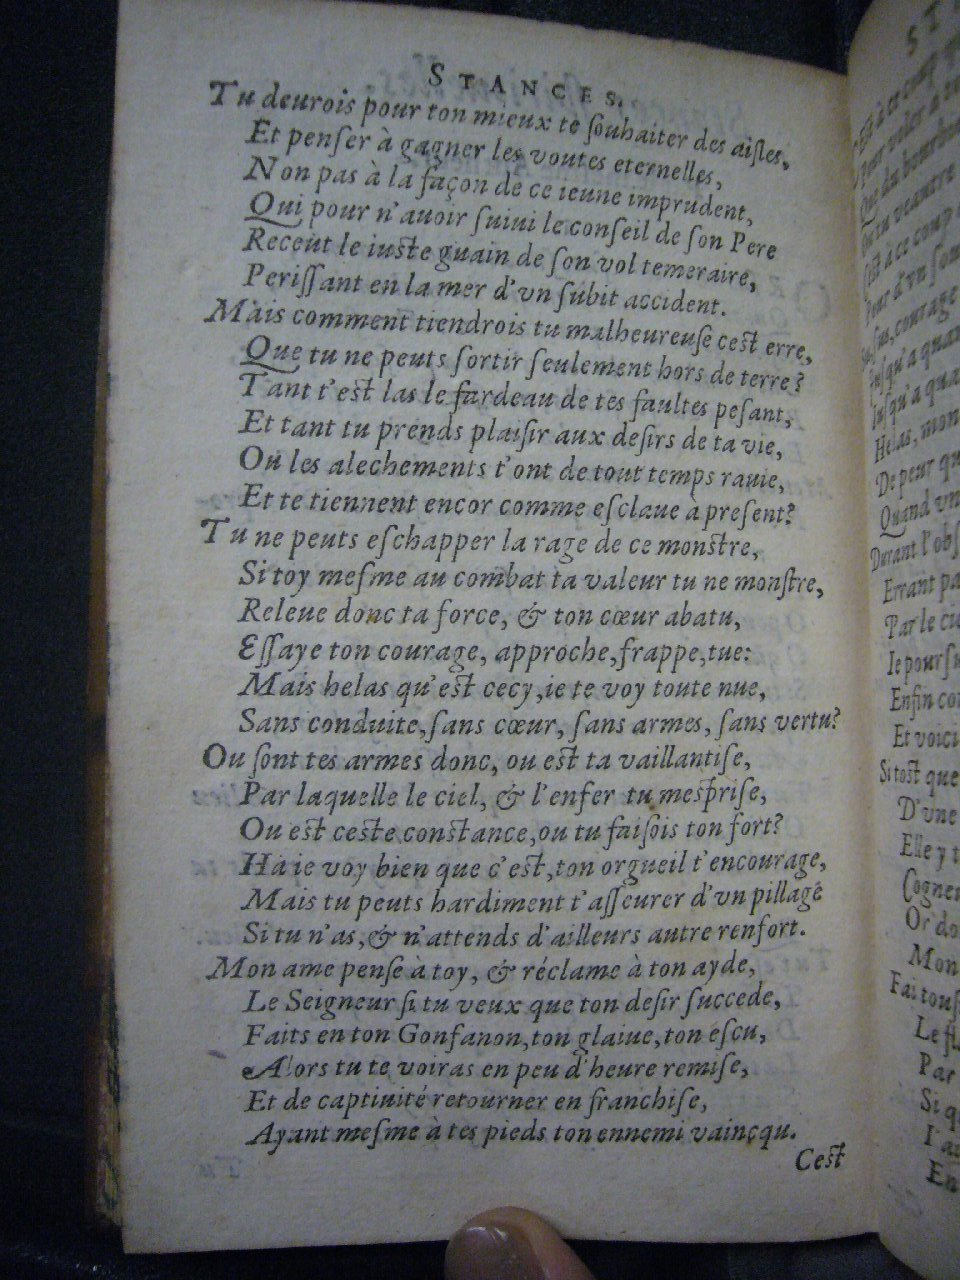 STANCES.
Tu deurois pour ton mieux te souhaiter des aisles,
Et penser à gagner les voutes eternelles,
Non pas à la façon de ce ieune imprudent,
Qui pour n'auoir suiui le conseil de son Pere
Receut le iuste guain de son vol temeraire,
Perissant en la mer d'vn subit accident.
Mais comment tiendrois tu malheureuse cest erre,
Que tu ne peuts sortir seulement hors de terre?
Tant t'est las le fardeau de tes faultes pesant,
Et tant tu prends plaisir aux desirs de ta vie,
Ou les alechements t'ont de tout temps rauie,
Et te tiennent encor comme esclaue a present?
Tu ne peuts eschapper la rage de ce monstre,
Si toy mesme au combat ta valeur tu ne monstre,
Releue donc ta force, & ton cœur abatu,
Essaye ton courage, approche, frappe, tue:
Mais helas qu'est cecy, ie te voy toute nue,
Sans conduite, sans cœur, sans armes, sans vertu?
Ou sont tes armes donc, ou est ta vaillantise,
Par laquelle le ciel, & l'enfer tu mesprise,
Ou est ceste constance, ou tu faisois ton fort?
Ha ie voy bien que c'est, ton orgueil t'encourage,
Mais tu peuts hardiment t'asseurer d'vn pillage
Si tu n'as, & n'attends d'ailleurs autre renfort.
Mon ame pense à toy, & réclame à ton ayde,
Le Seigneur si tu veux que ton desir succede,
Faits en ton Gonfanon, ton glaiue, ton escu,
Alors tu te voiras en peu d'heure remise,
Et de captiuité retourner en franchise,
Ayant mesme à tes pieds ton ennemi vaincqu.
Cest
ST
C'Est à ce coup
Pour voler à
Que du bourbi
Ou tu veautre
C'est à ce coup
Pour d'vn som
Sus, courage
Iusqu'a quan
Iusqu'a qua
Helas, mon
De peur qu
Quand vn
Durant l'obs
Errant pa
Par le cie
Ie poursu
Enfin co
Et voici
Si tost que
D'vne
Elle y t
Cogne
Or do
Mon
Fai tous
Le fl
Par
Si q
I'a
En